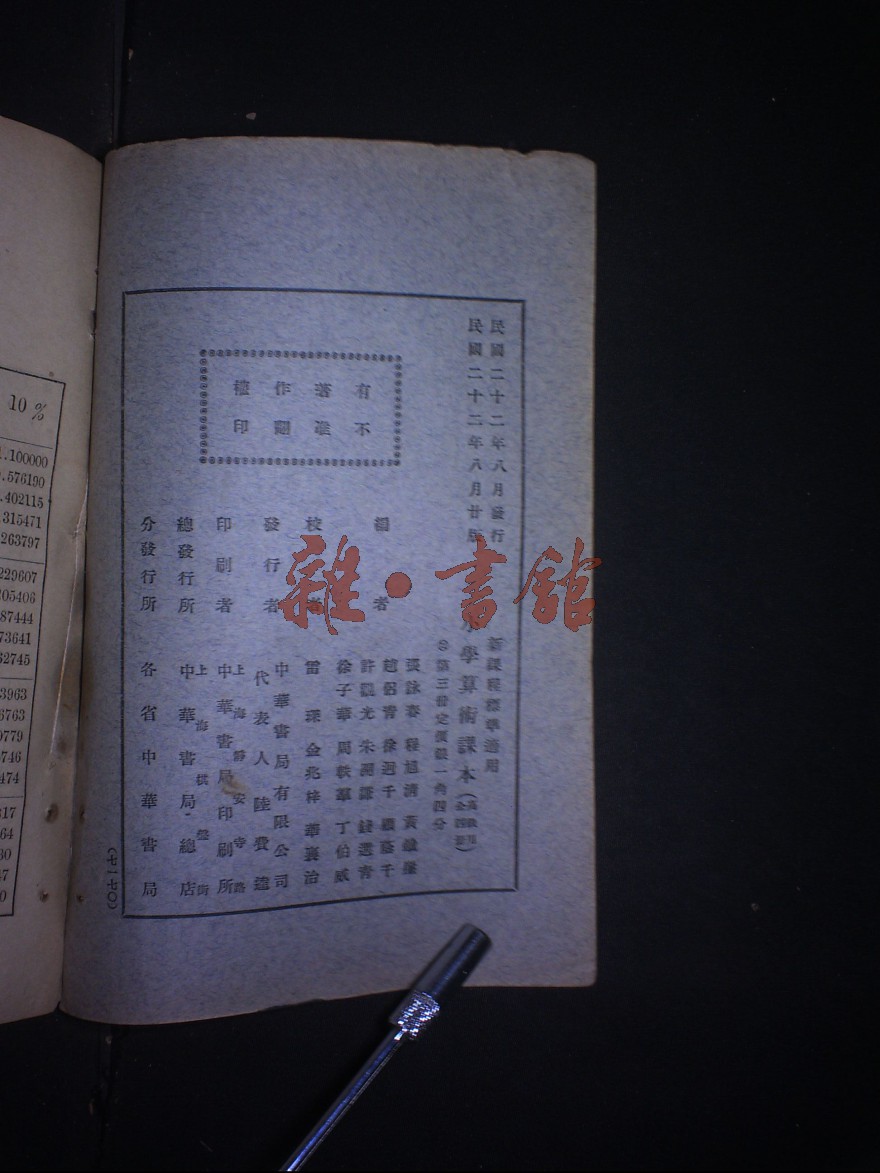 民國二十二年八月發行
民國二十二年八月廿版
新課程標準適用
小學算術課本（高級用全四册）
第三册定價銀一角四分
有著作權
不准翻印
編者
張詠春 程旭清
趙侶青 徐迥千
許觀光 朱 錢選青
徐子華 周軼羣 丁伯威
校者
雷琛 金兆梓 華襄治
發行者
中華書局有限公司
代表人 陸費逵
印刷者
上海靜安寺路
中華書局印刷所
總發行所
上海棋盤街
中華書局總店
分發行所
各省中華書局
（七一七〇）
雜·書館
10 %
1.100000
.576190
.402115
.315471
263797
229607
205406
87444
73641
62745
3963
6763
0779
5746
474
317
64
30
37
0